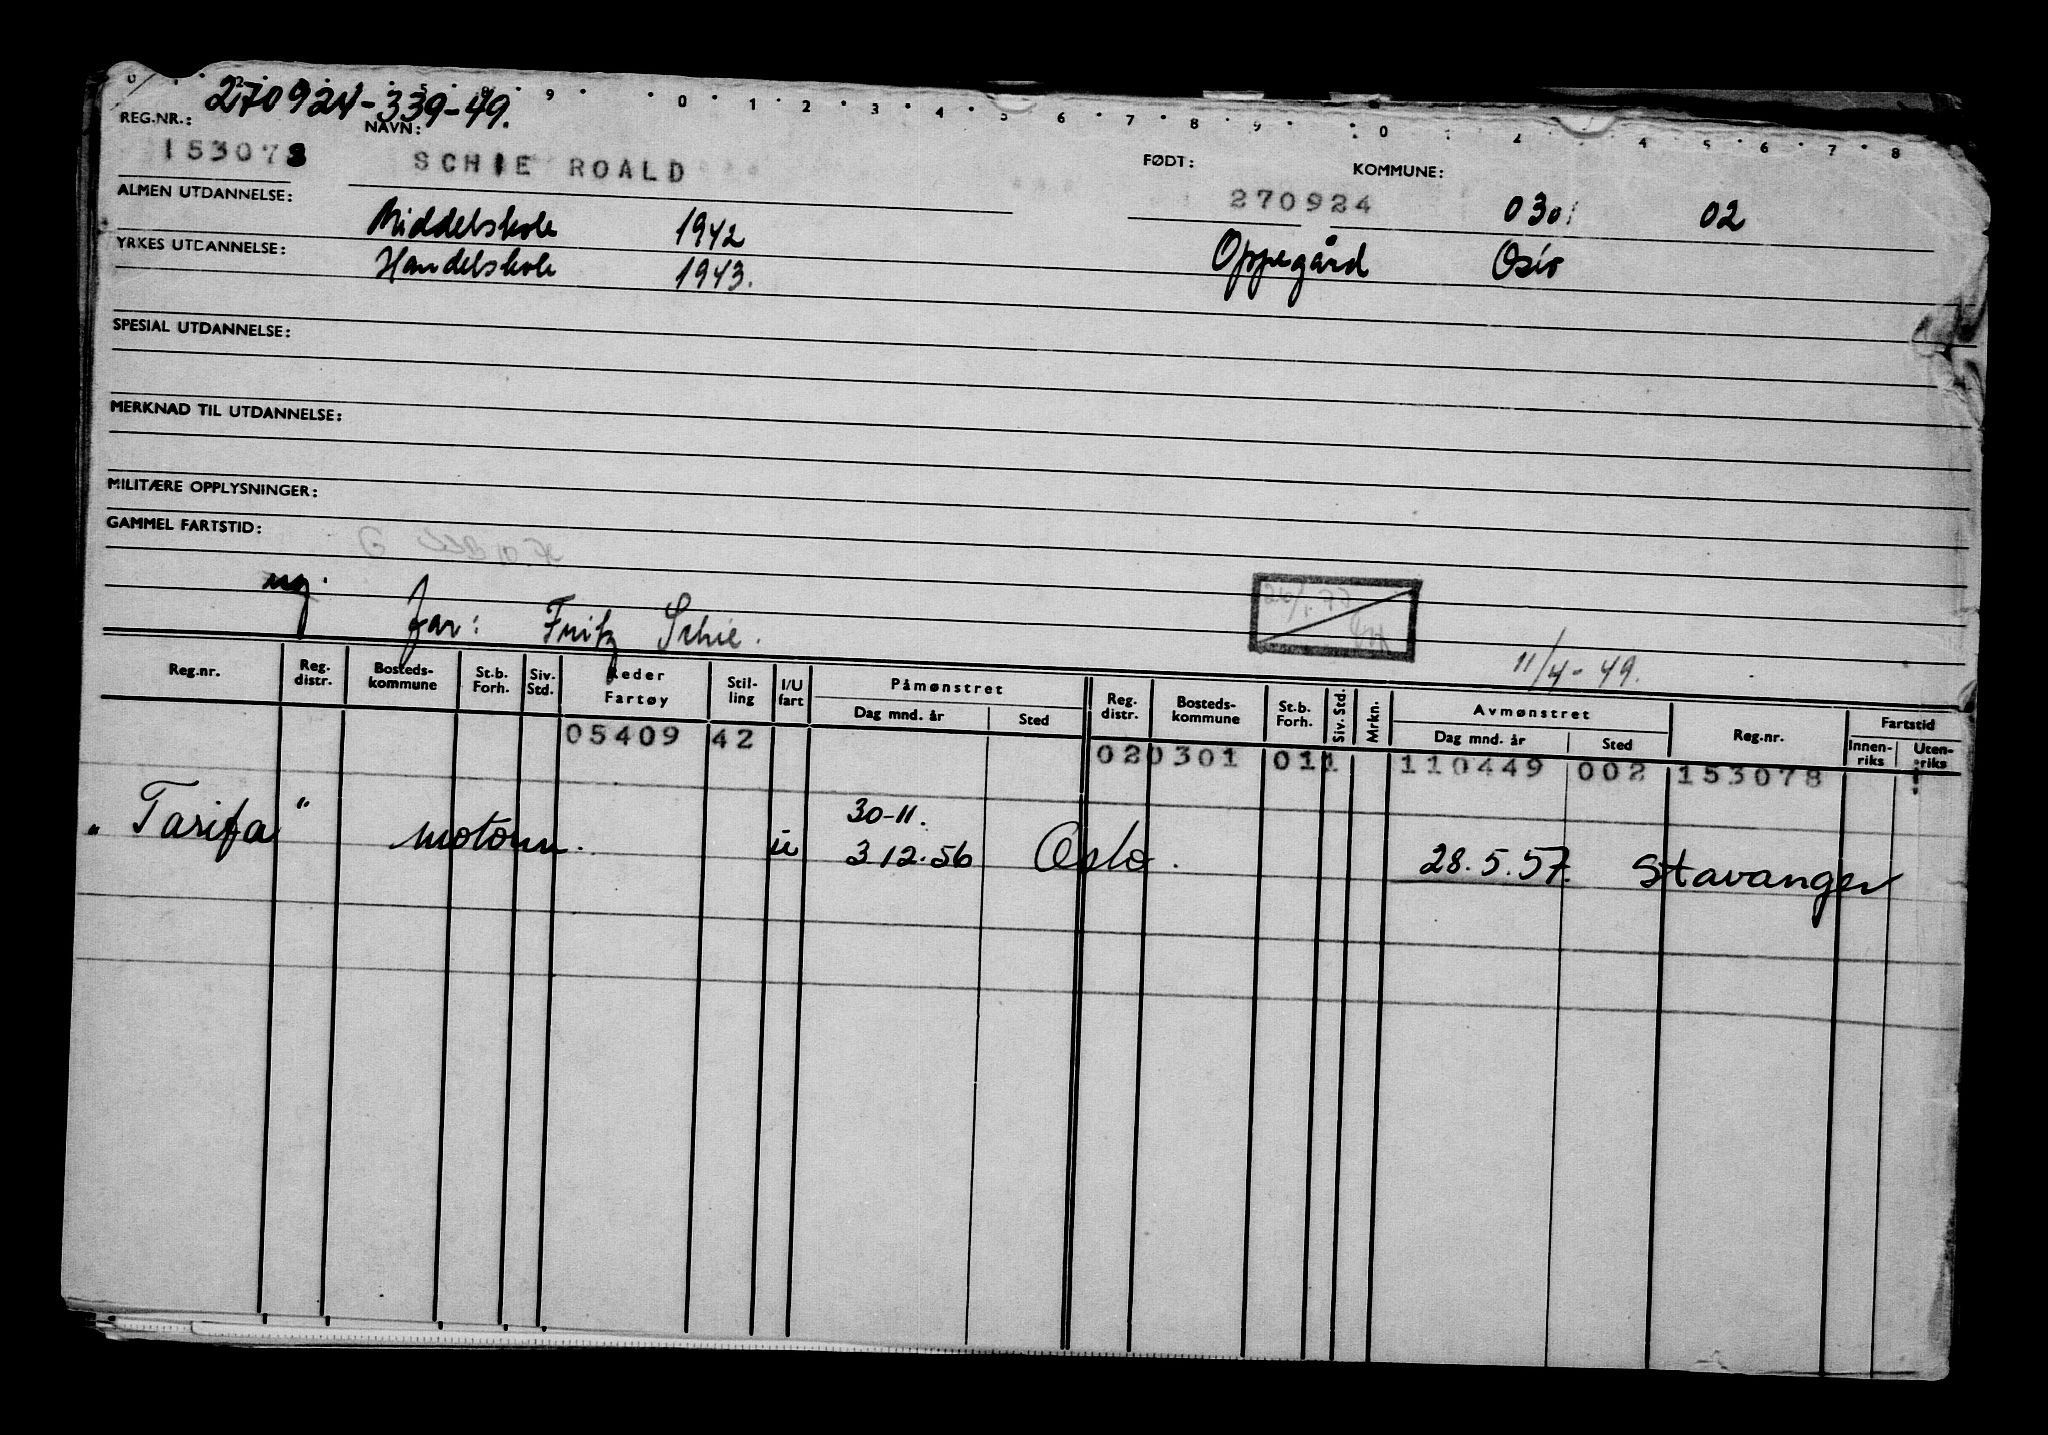 270924-339-49.
REG.NR.: NAVN: FØDT: KOMMUNE:
153078 SCHIE ROALD 270924 0301 02
ALMEN UTDANNELSE: Middelskole 1942 Oppegård Oslo
YRKES UTDANNELSE: Handelskole 1943.
SPESIAL UTDANNELSE:
MERKNAD TIL UTDANNELSE:
MILITÆRE OPPLYSNINGER:
GAMMEL FARTSTID:
ug. far: Fritz Schie. 11/4-49.
Reg.nr. Reg. distr. Bosteds-kommune St.b. Forh. Siv. Std. Reder Fartøy Stil-ling I/U fart Påmønstret Dag mnd. år Sted Reg. distr. Bosteds-kommune St.b. Forh. Siv. Std. Mrkn. Avmønstret Dag mnd. år Sted Reg.nr. Fartstid Innen-riks Uten-riks
05409 42 020301 011 110449 002 153078
"Tarifa" motorm. u 30-11. 3.12.56 Oslo. 28.5.57. Stavanger